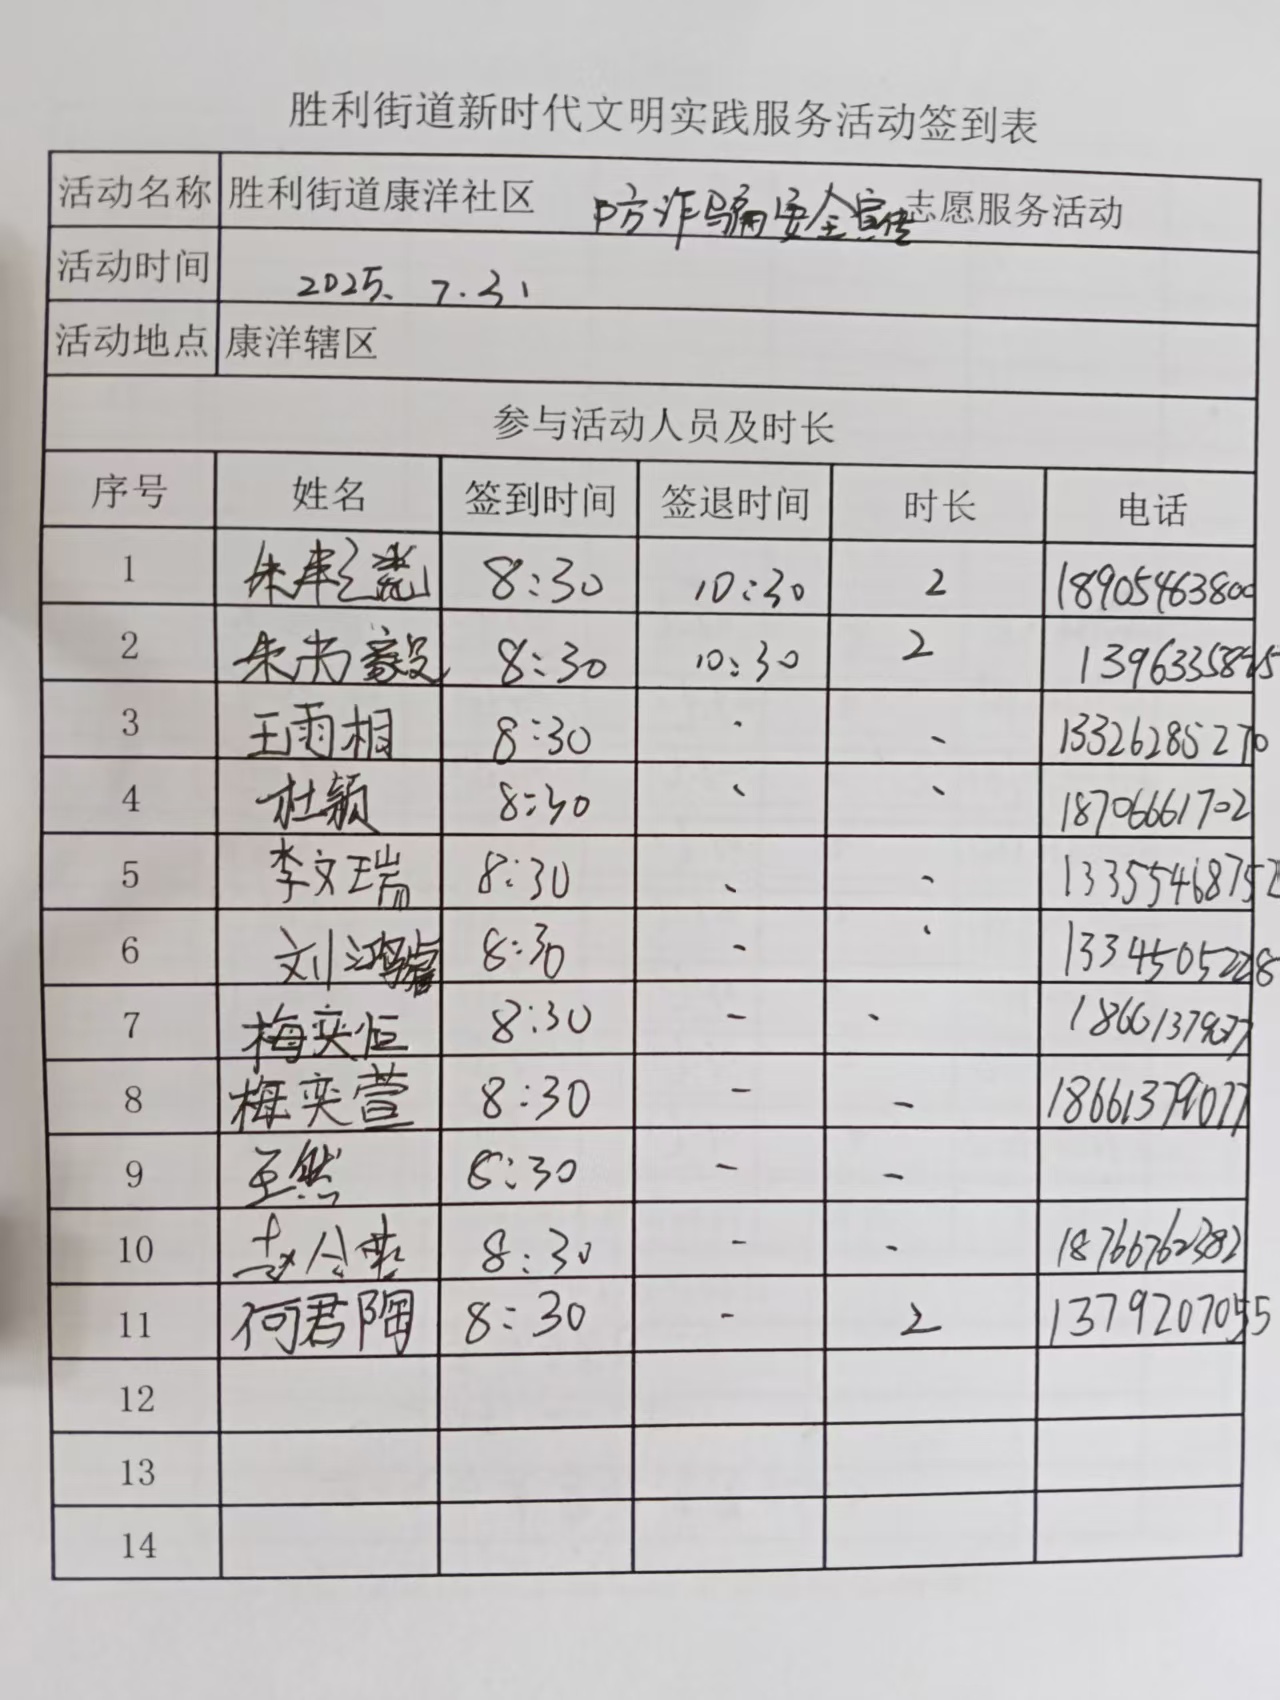 胜利街道新时代文明实践服务活动签到表
活动名称 胜利街道康洋社区 防诈骗安全宣传 志愿服务活动
活动时间 2025. 7.31
活动地点 康洋辖区
参与活动人员及时长
序号 姓名 签到时间 签退时间 时长 电话
1 朱 8:30 10:30 2 18905463800
2 朱尚毅 8:30 10:30 2
3 王雨相 8:30 - - 13326285270
4 杜颖 8:30 - - 18706661702
5 李文瑞 8:30 - - 1335546875
6 刘鸿睿 8:30 - - 1334505228
7 梅奕恒 8:30 - - 18661379077
8 梅奕萱 8:30 - - 18661379077
9 王然 8:30 - -
10 赵 8:30 - - 18766762382
11 何君陶 8:30 - 2 1379207055
12
13
14